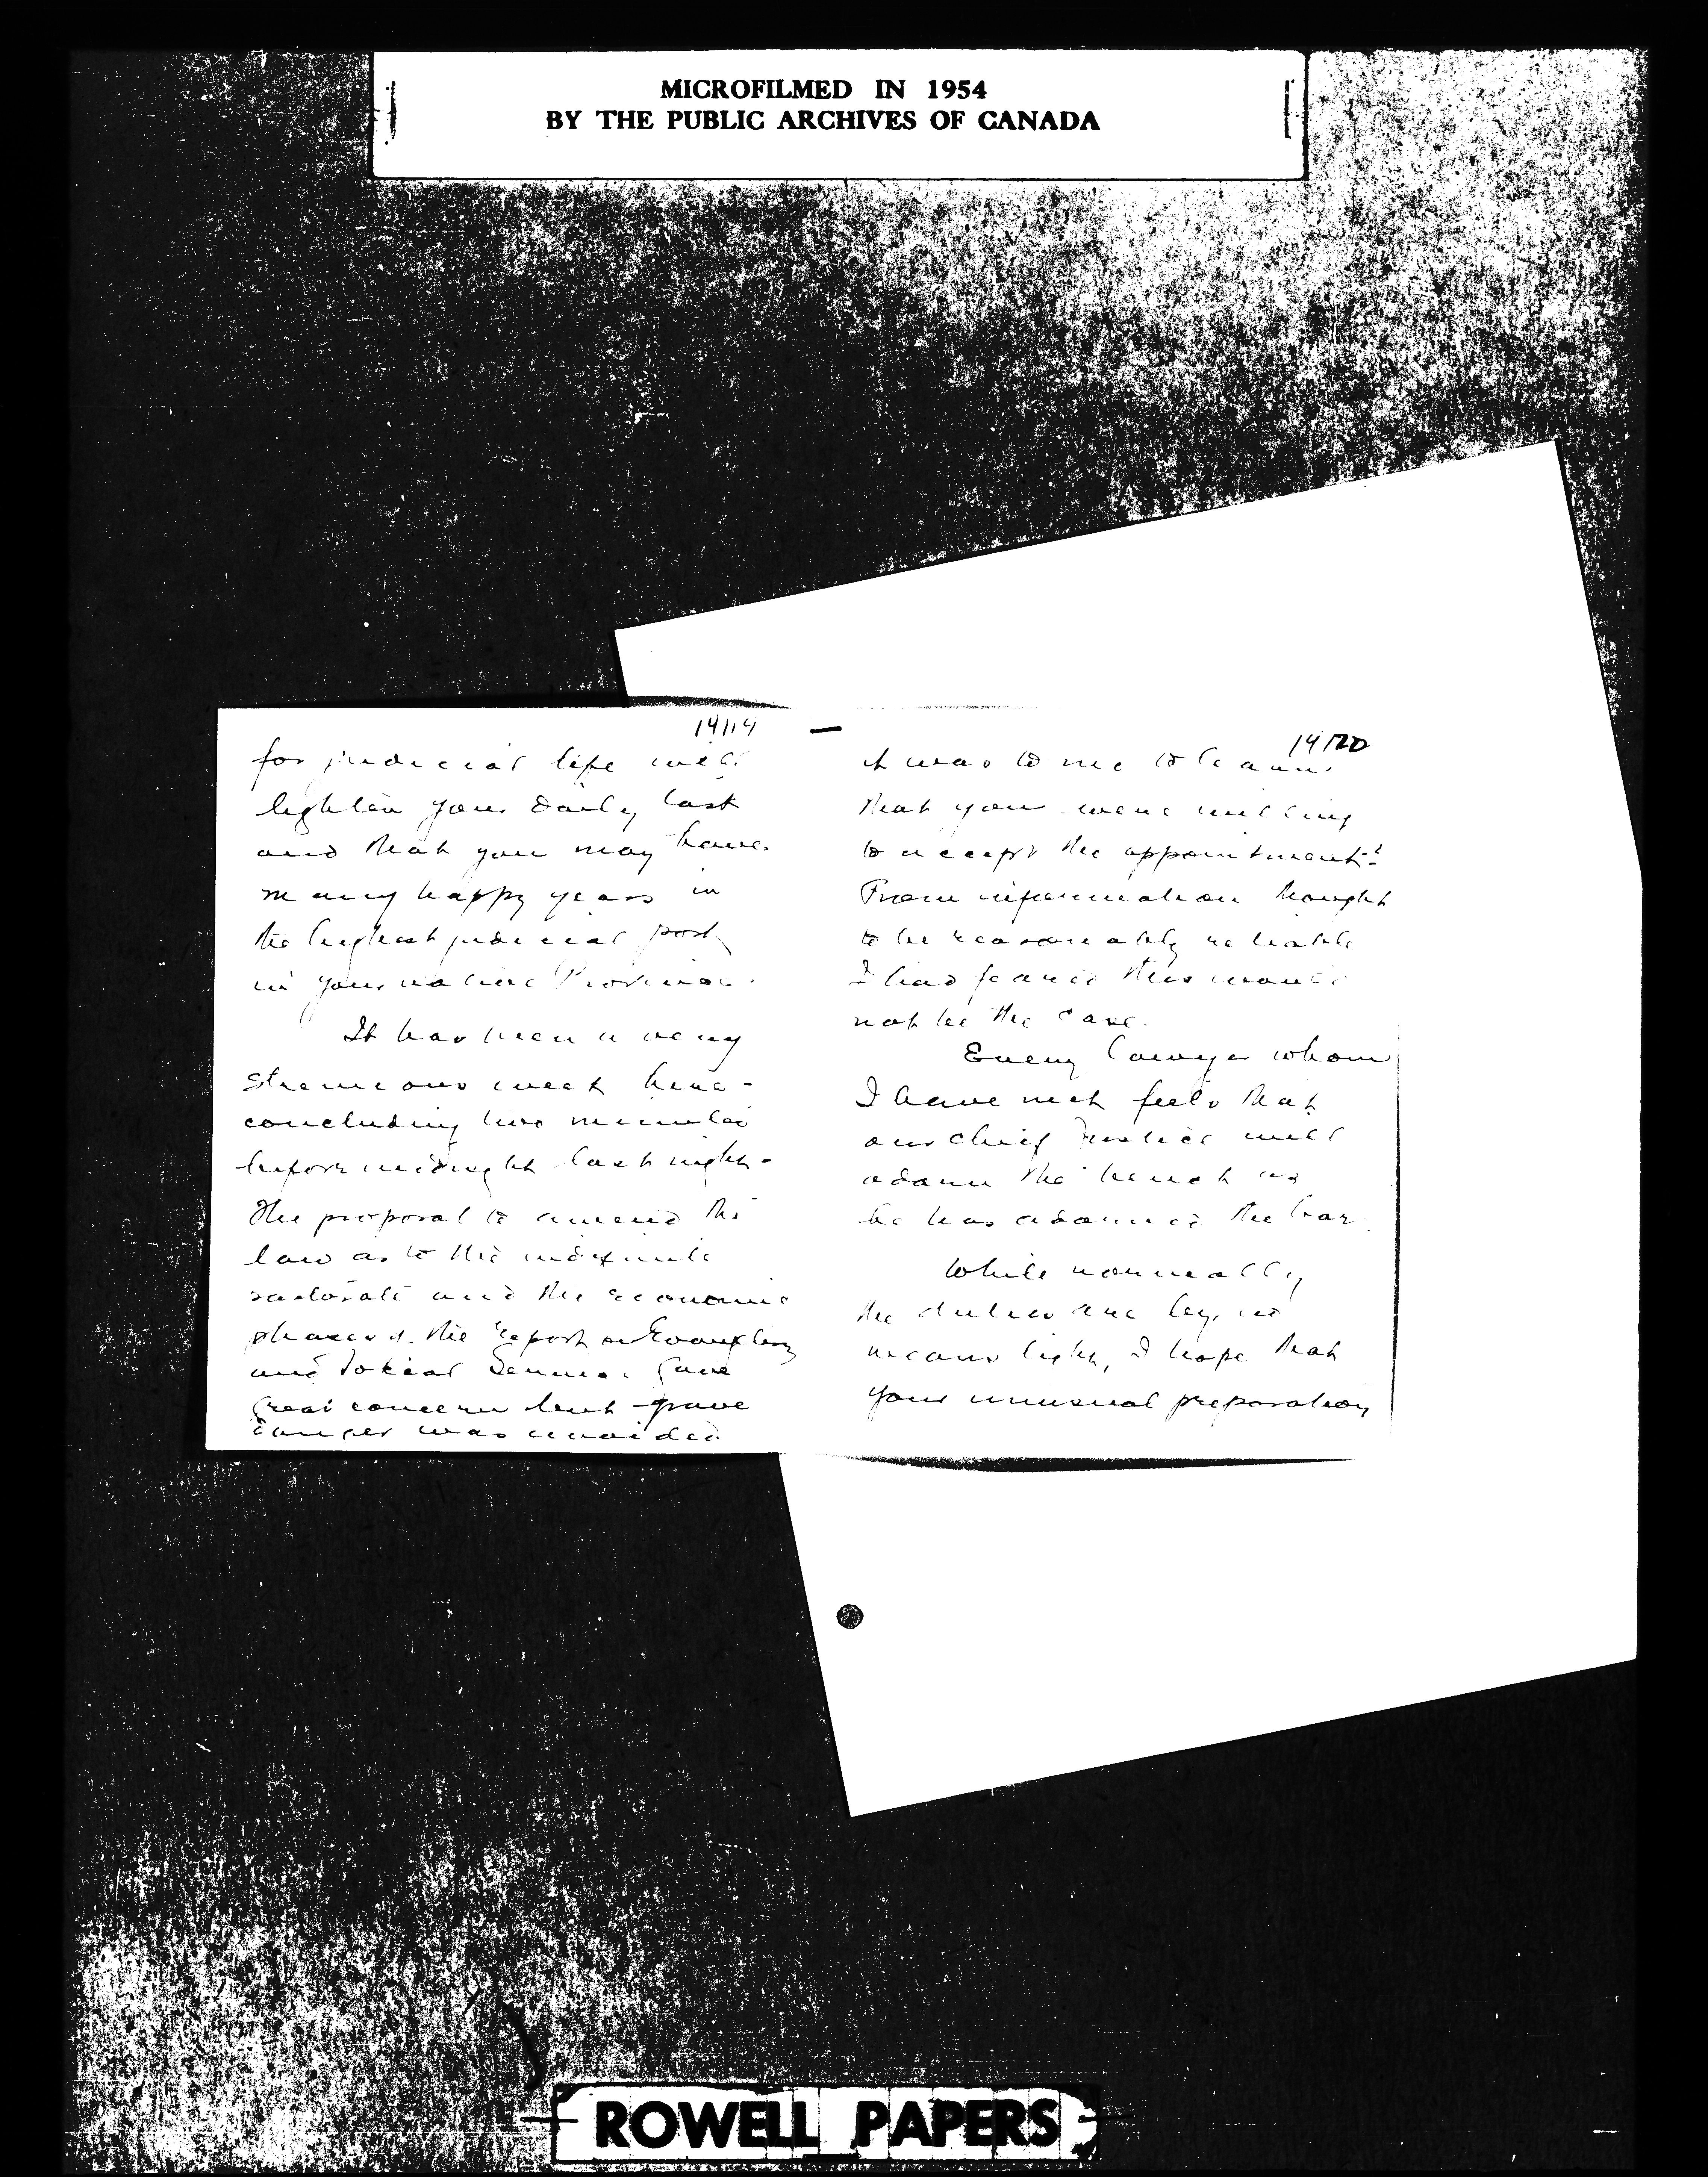 MICROFILMED IN 1954
BY THE PUBLIC ARCHIVES OF CANADA
14119
for judicial life will
lighten your daily task
and that you may have
many happy years in
the highest judicial post
in your native Province.
It has been a very
strenuous week here -
concluding two minutes
before midnight last night -
The proposal to amend the
law as to the indefinite
pastorate and the economic
phases of the report on Evangelism
and Social Service gave
great concern but grave
danger was avoided
14120
it was to me to learn
that you were willing
to accept the appointment!
From information thought
to be reasonably reliable
I had feared this would
not be the case.
Every lawyer whom
I have met feels that
our Chief Justice will
adorn the bench as
he has adorned the bar.
While normally
the duties are by no
means light, I hope that
your unusual preparation
ROWELL PAPERS